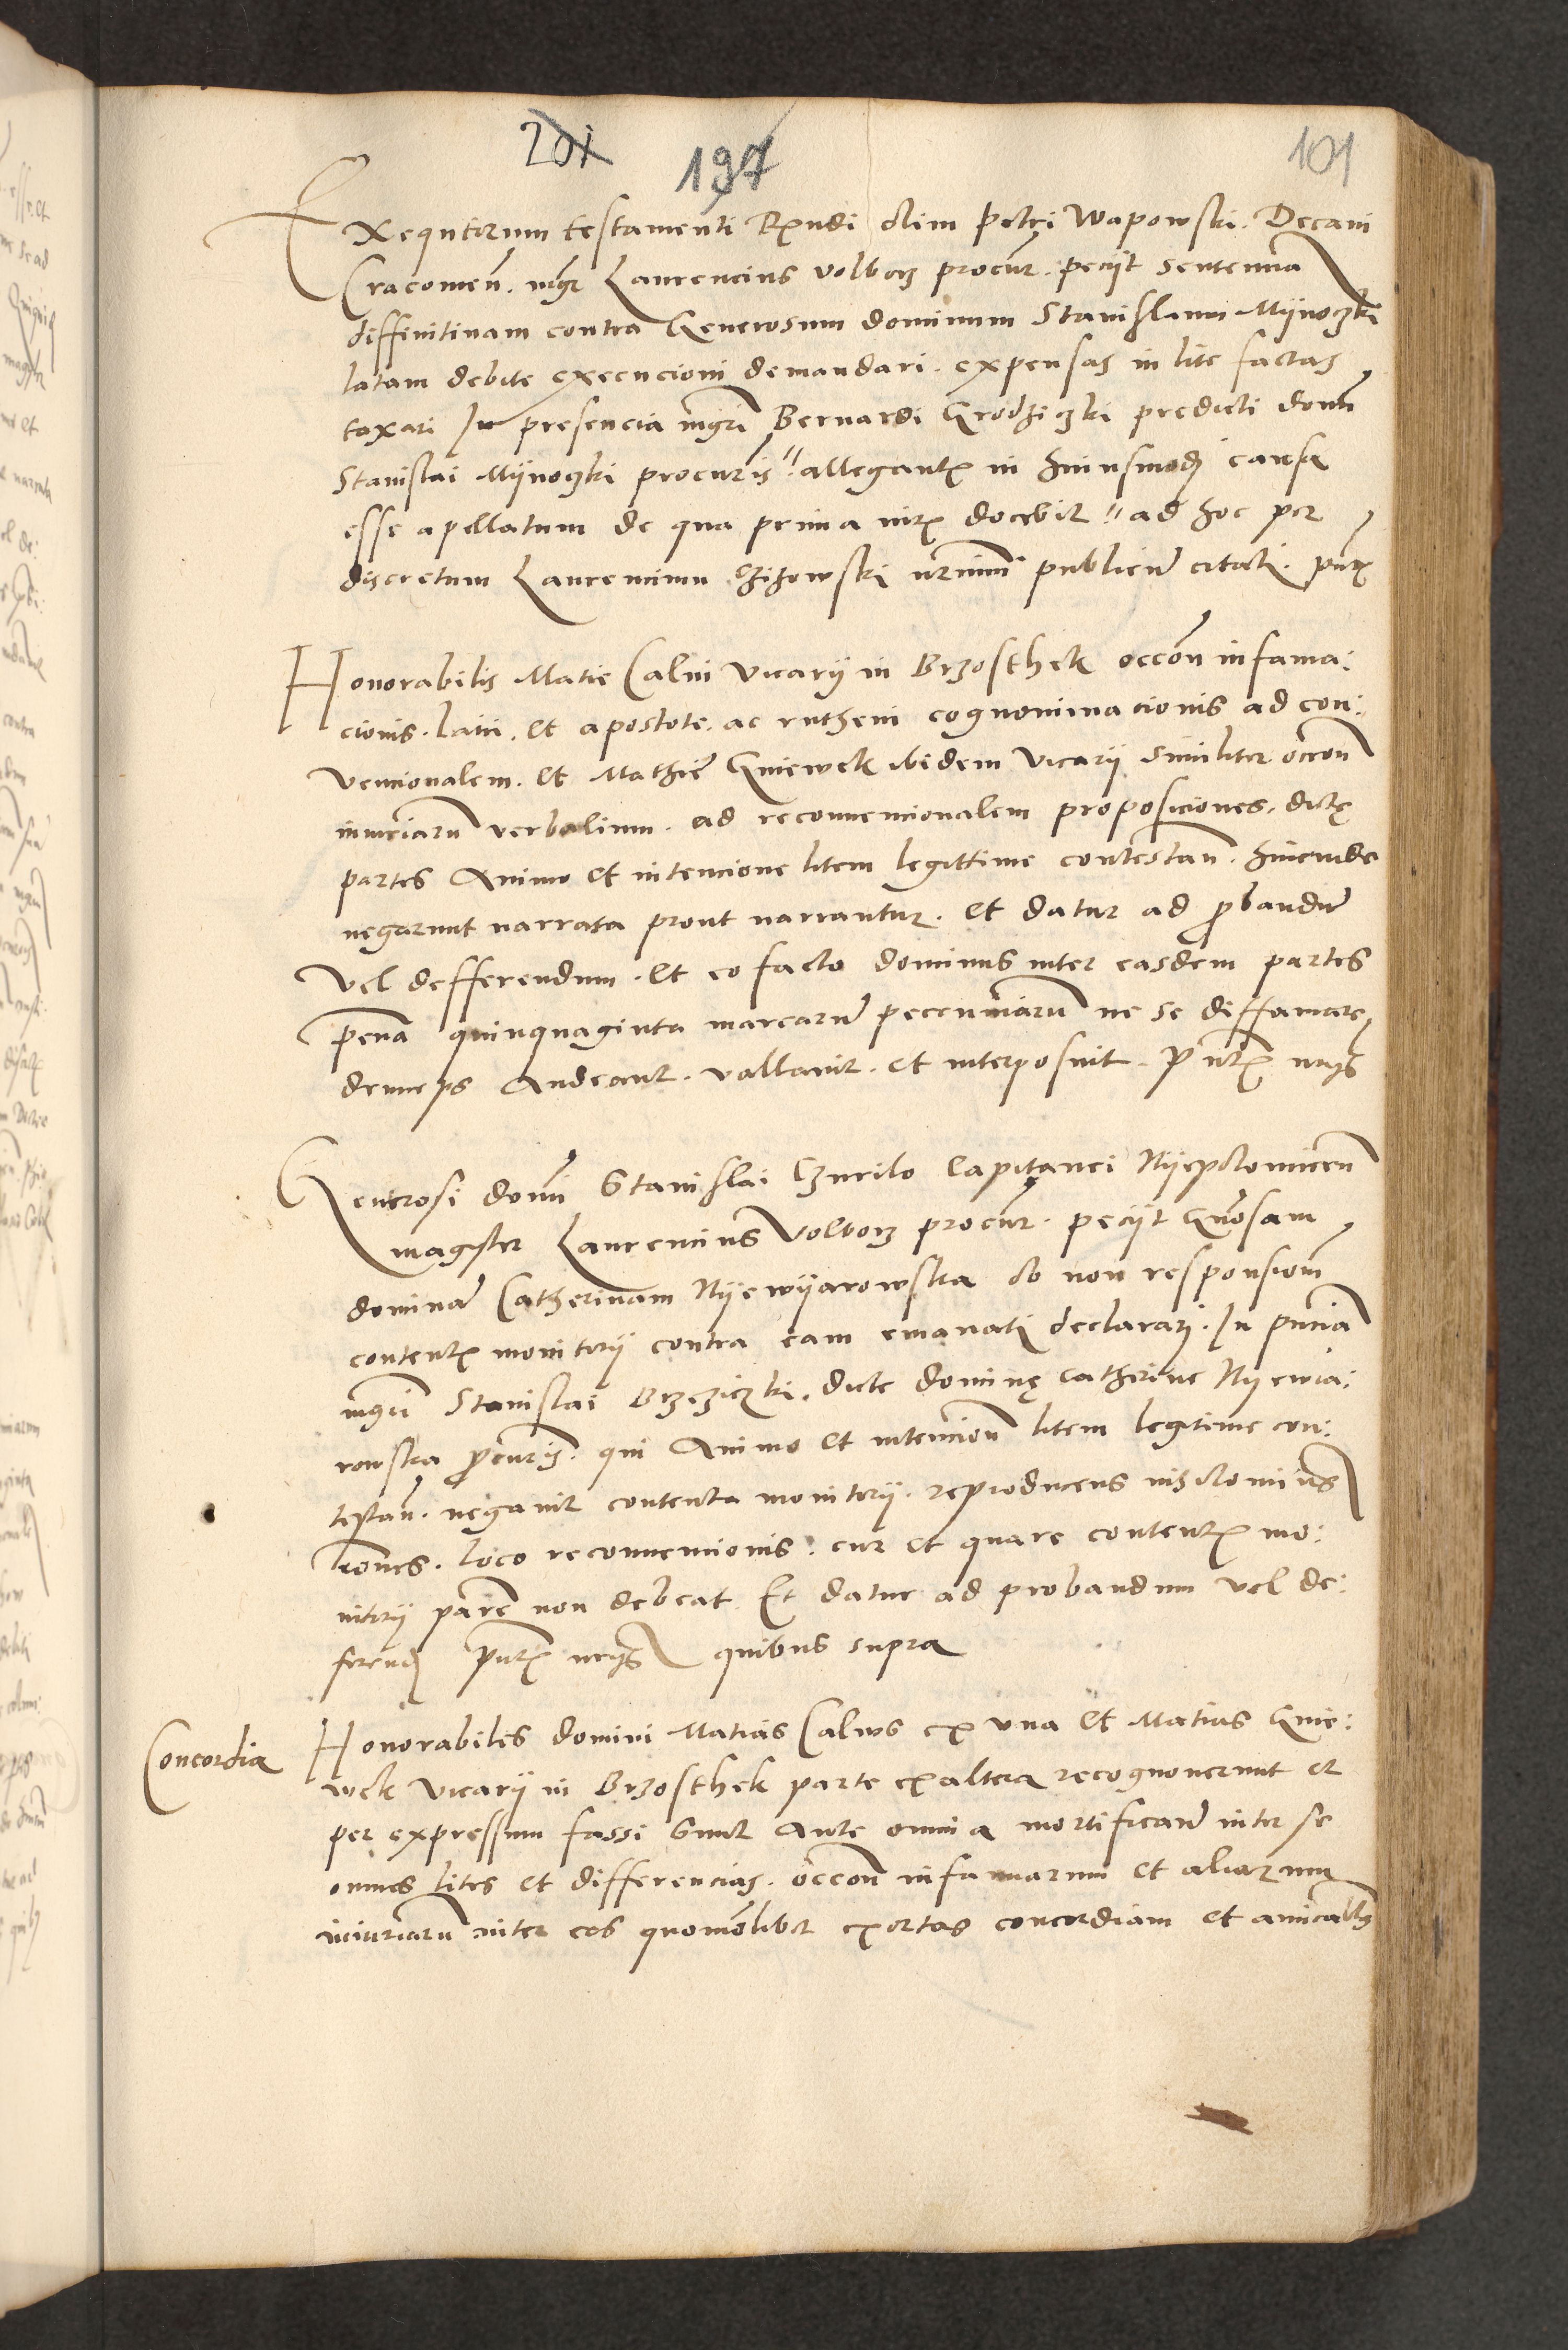 201 197 101
Exequtorum testamenti Rndi olim Petri Wapowski. Decani
Cracouien. mgr Laurencius Volborz procur. peciit sentencia
diffinitiuam contra Generosum dominum Stanislaum Mijnoczki
latam debite execucioni demandari. expensas in lite factas
taxari In presencia mgri Bernardi Grodziczki predicti domi
Stanislai Mijnoczki procuris allegantis in huiusmodi causa
esse apellatum de qua prima iuris docebit ad hoc per
discretum Laurencium publicum citati. pntibus
Honorabilis Matie Calui Vicarij in Brzosthek occon infama:
cionis. latii. et apostote. ac rutheni cognominacionis ad con:
uencionalem. et Mathie Gniewek ibidem Vicarij similiter occon
iniuriarum verbalium. ad reconuencionalem proposiciones. dicte
partes Animo et intencione litem legittime contestan. hincinde
negarunt narrata prout narrantur. Et datur ad probandum
Vel defferendum. Et eo facto dominus inter easdem partes
pena quinquaginta marcarum pecuniarum ne se diffamare
deinceps Audeant. vallauit. et interposuit. Pntibus
Generosi domi Stanislai Czurilo Capitanei Nijepolomicen
magister Laurencius Volborz procur. peciit Gnosam
dominam Catherinam Nijewijarowska ob non responsiom
contentis monitorij contra eam emanati declarari. In pncia
mgri Stanislai Brzeziczki. dicte domine Catherine Nijewia:
rowska procuris. qui Animo et intencion litem legitime con:
testan. negauit contenta monitorij. reproducens
iones. loco reconuencionis. cur et quare contentis mo:
nitorij parere non debeat. Et datur ad probandum vel de:
ferend Pntibus quibus supra
Concordia
Honorabiles domini Matias Caluus ex vna et Matias Gnie:
wek Vicarij in Brzosthek parte ex altera recognouerunt et
per expressum fassi sunt Ante omnia mortificare inter se
omnes lites et differencias. occon infamiarum et aliarum
iniuriarum inter eos quomolibet exortas concordiam et